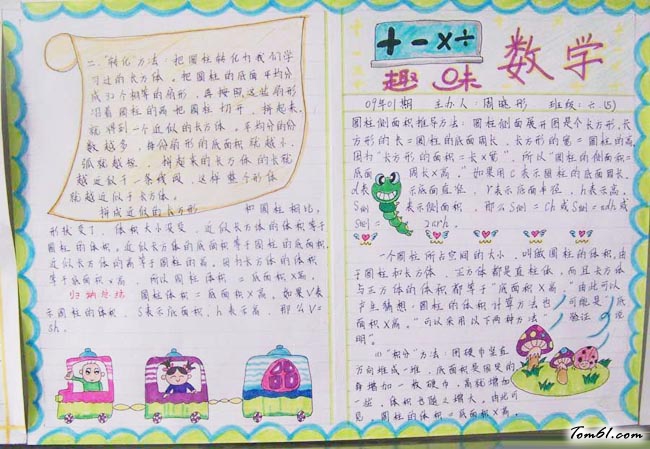 二、"转化"方法：把圆柱转化为我们学
习过的长方体。把圆柱的底面平均分
成32个相等的扇形，再按照这些扇形
沿着圆柱的高把圆柱切开，拼起来，
就得到一个近似的长方体。平均分的份
数越多，每份扇形的底面积就越小，
弧就越短，拼起来的长方体的长就
越近似于一条线段，这样整个形体
就越近似于长方体。
拼成近似的长方形 和圆柱相比，
形状变了，体积大小没变。近似长方体的体积等于
圆柱的体积。近似长方体的底面积等于圆柱的底面积，
近似长方体的高等于圆柱的高。因为长方体的体积
等于底面积×高，所以圆柱体积=底面积×高。
归纳总结 圆柱体积=底面积×高。如果V表
示圆柱的体积，S表示底面积，h表示高，那么V=
sh。
+-×÷
趣味 数学
09年01期 主办人：周晓彤 班级：六.(5)
圆柱侧面积推导方法：圆柱侧面展开图是个长方形，长
方形的长=圆柱的底面周长，长方形的宽=圆柱的高。
因为"长方形的面积=长×宽"，所以"圆柱的侧面积=
底面 周长×高。"如果用C表示圆柱的底面周长，
d表 示底面直径，r表示底面半径，h表示高，
S侧 表示侧面积，那么S侧=Ch或S侧=πdh或
S侧= 2πrh。
一个圆柱所占空间的大小，叫做圆柱的体积。由
于圆柱和长方体、正方体都是直柱体，而且长方体
与正方体的体积都等于"底面积×高"，由此可以
产生猜想：圆柱的体积计算方法也 可能是"底
面积×高。"可以采用以下两种方法 验证 说
明。
(1)"积分"方法：用硬币竖直
方向堆成一堆，底面积是固定的
每增加一枚硬币，高就增加
一些，体积也随之增大。由此可
见 圆柱的体积=底面积×高。
Tom61.com